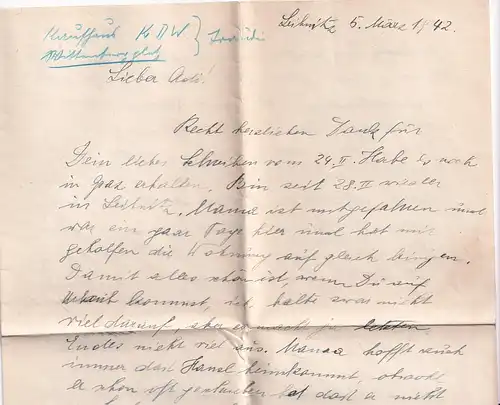 Kaufhaus KDW
Wittenbergplatz
Leibnitz 5. März 1942.
Lieber Adi!
Recht herzlichen Dank für
Dein liebes Schreiben vom 24.II. Habe es noch
in Graz erhalten. Bin seit 28.II wieder
in Leibnitz. Mama ist mitgefahren und
war ein paar Tage hier und hat mir
geholfen die Wohnung auf gleich bringen.
Damit alles schön ist, wenn Du auf
Urlaub kommst, ich halte zwar nicht
viel darauf, aber es macht ja letzten
Endes nicht viel aus. Mama hofft auch
immer das Hansl heimkommt, obwohl
er schon oft geschrieben hat daß er nicht